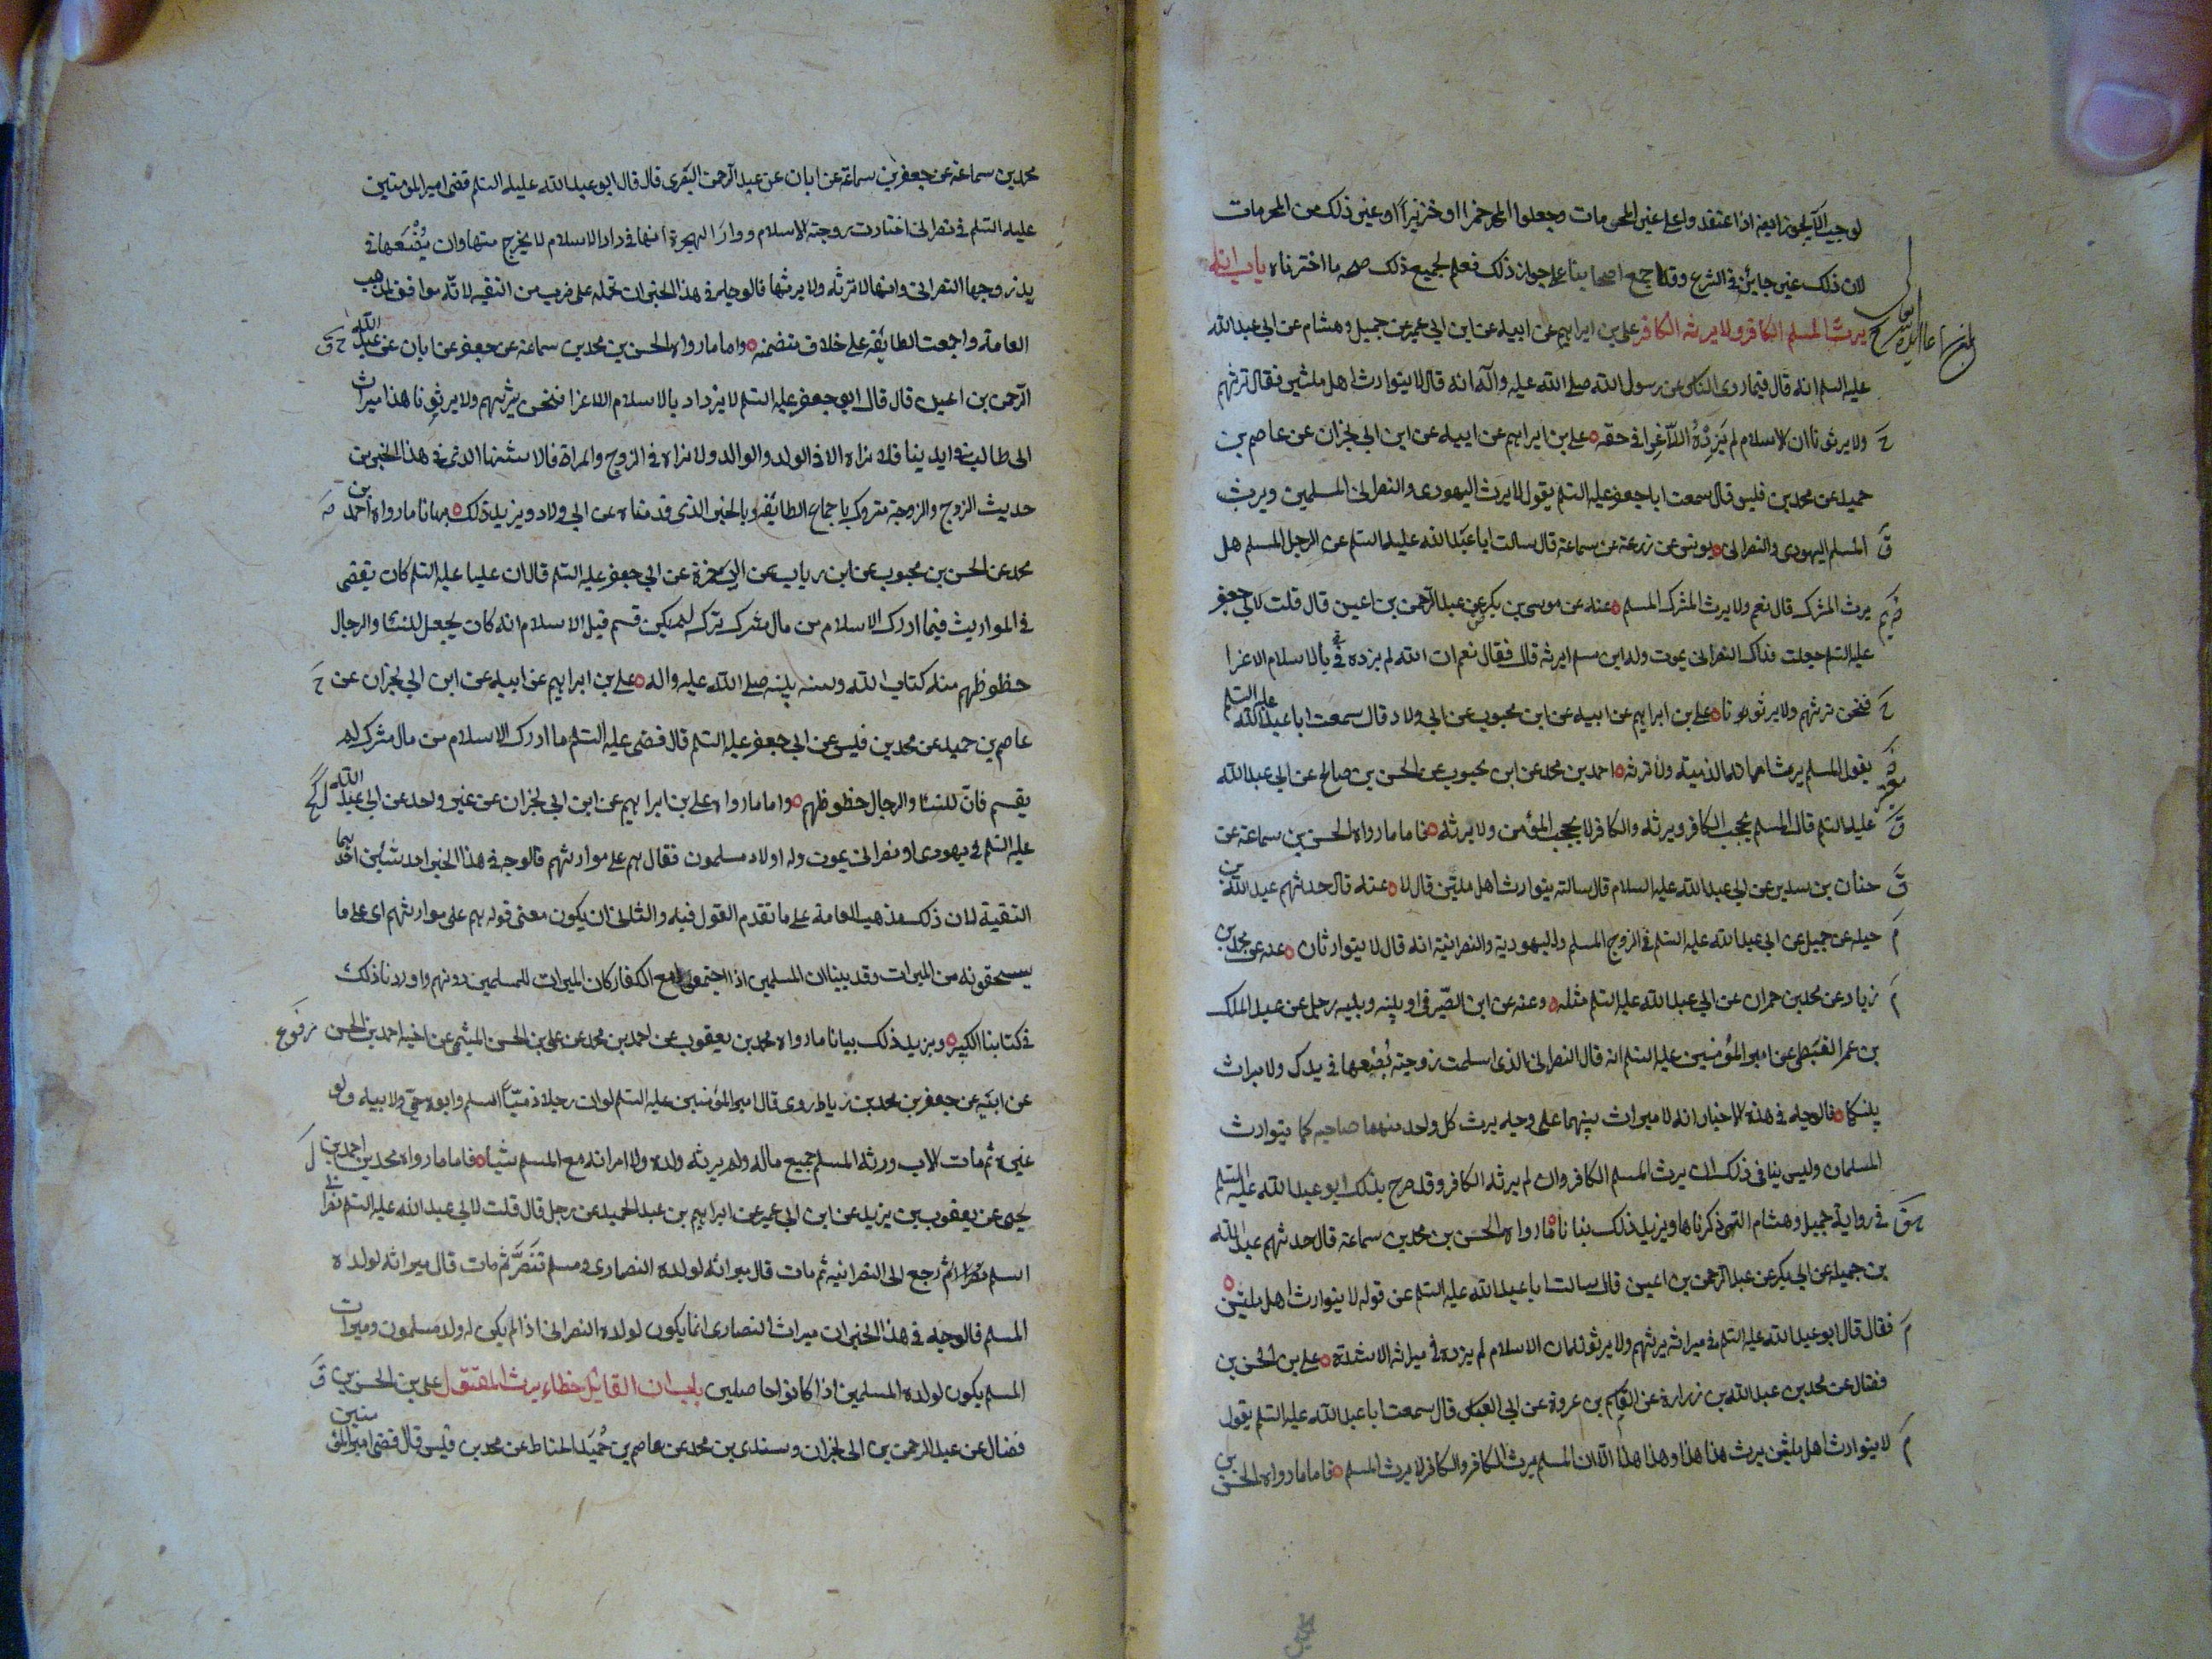 لوجب الا يجوز ايضا اذا اعتقدوا على غير المحرمات وجعلوا المهر خمرا او خنزيرا او غير ذلك من المحرمات
لان ذلك غير جايز في الشرع وقد اجمع اصحابنا على جواز ذلك فعلم بجميع ذلك صحة ما اخترناه باب انه
يرث المسلم الكافر ولا يرثه الكافر علي بن ابراهيم عن ابيه عن ابن ابي عمير عن جميل وهشام عن ابي عبد الله
عليه السلم انه قال فيما روى الناس عن رسول الله صلى الله عليه وآله انه قال لا يتوارث اهل ملتين فقال ترثهم
ولا يرثونا ان الاسلام لم يزده الا عزا في حقه علي بن ابراهيم عن ابيه عن ابن ابي نجران عن عاصم بن
حميد عن محمد بن قيس قال سمعت ابا جعفر عليه السلم يقول لا يرث اليهودي والنصراني المسلمين ويرث
المسلم اليهودي والنصراني يونس عن زرعة عن سماعة قال سالت ابا عبد الله عليه السلم عن الرجل المسلم هل
يرث المشرك قال نعم ولا يرث المشرك المسلم عنه عن موسى بن بكر عن عبد الرحمن بن اعين قال قلت لابي جعفر
عليه السلم جعلت فداك النصراني يموت وله ابن مسلم ايرثه قال فقال نعم ان الله لم يزده بالاسلام الا عزا
فنحن نرثهم ولا يرثونا علي بن ابراهيم عن ابيه عن ابن محبوب عن ابي ولاد قال سمعت ابا عبد الله عليه السلم
يقول المسلم يرث امراته الذمية ولا ترثه احمد بن محمد عن ابن محبوب عن الحسن بن صالح عن ابي عبد الله
عليه السلم قال المسلم يحجب الكافر ويرثه والكافر لا يحجب المؤمن ولا يرثه فاما ما رواه الحسن بن سماعة عن
حنان بن سدير عن ابي عبد الله عليه السلام قال سالته يتوارث اهل ملتين قال لا عنه قال حدثهم عبد الله بن
جبلة عن جميل عن ابي عبد الله عليه السلم في الزوج المسلم واليهودية والنصرانية انه قال لا يتوارثان عنه عن محمد بن
زياد عن محمد بن حمران عن ابي عبد الله عليه السلم مثله وعنه عن ابن الصيرفي او بينه وبينه رجل عن عبد الملك
بن عمر القبطي عن امير المؤمنين عليه السلم انه قال النصراني الذي اسلمت زوجته بضعها في يدك ولا ميراث
بينكما فالوجه في هذه الاخبار انه لا ميراث بينهما على وجه يرث كل واحد منهما صاحبه كما يتوارث
المسلمان وليس ينافي ذلك ان يرث المسلم الكافر وان لم يرثه الكافر وقد صرح بذلك ابو عبد الله عليه السلم
في رواية جميل وهشام التي ذكرناها ويزيد ذلك بيانا ما رواه الحسن بن محمد بن سماعة قال حدثهم عبد الله
بن جبلة عن ابي بكر عن عبد الرحمن بن اعين قال سالت ابا عبد الله عليه السلم عن قوله لا يتوارث اهل ملتين
فقال قال ابو عبد الله عليه السلم في ميراثه يرثهم ولا يرثونه ان الاسلام لم يزده في ميراثه الا شدة علي بن الحسن بن
فضال عن محمد بن عبد الله بن زرارة عن القاسم بن عروة عن ابي العباس قال سمعت ابا عبد الله عليه السلم يقول
لا يتوارث اهل ملتين يرث هذا هذا وهذا هذا الا ان المسلم يرث الكافر والكافر لا يرث المسلم فاما ما رواه الحسن بن
محمد بن سماعة عن جعفر بن سماعة عن ابان عن عبد الرحمن البصري قال قال ابو عبد الله عليه السلم قضى امير المؤمنين
عليه السلم في نصراني اختارت زوجته الاسلام ودار الهجرة انها في دار الاسلام لا يخرج منها وان بضعها في
يد زوجها النصراني وانها لا ترثه ولا يرثها فالوجه في هذا الخبر ان نحمله على ضرب من التقية لانه موافق لمذهب
العامة واجمعت الطائفة على خلاف متضمنه واما ما رواه الحسن بن محمد بن سماعة عن جعفر عن ابان عن عبد
الرحمن بن اعين قال قال ابو جعفر عليه السلم لا يزداد بالاسلام الا عزا فنحن نرثهم ولا يرثونا هذا ميراث
ابي طالب في ايدينا فلا نراه الا في الولد والوالد ولا نراه في الزوج والمراة فالاستثناء الذي في هذا الخبر من
حديث الزوج والزوجة متروك باجماع الطائفة وبالخبر الذي قدمناه عن ابي ولاد ويزيد ذلك بيانا ما رواه احمد بن
محمد عن الحسن بن محبوب عن ابن رياب عن ابي حمزة عن ابي جعفر عليه السلم قال ان عليا عليه السلم كان يقضي
في المواريث فيما ادرك الاسلام من مال مشرك تركه لم يكن قسم قبل الاسلام انه كان يجعل للنساء والرجال
حظوظهم منه كتاب الله وسنة نبيه صلى الله عليه واله علي بن ابراهيم عن ابيه عن ابن ابي نجران عن
عاصم بن حميد عن محمد بن قيس عن ابي جعفر عليه السلم قال قضى عليه السلم ما ادرك الاسلام من مال مشرك لم
يقسم فان للنساء والرجال حظوظهم واما ما رواه علي بن ابراهيم عن ابن ابي نجران عن غير واحد عن ابي عبد الله
عليه السلم في يهودي او نصراني يموت وله اولاد مسلمون فقال هم على مواريثهم فالوجه في هذا الخبر احد شيئين احدهما
التقية لان ذلك مذهب العامة على ما تقدم القول فيه والثاني ان يكون معنى قوله هم على مواريثهم اى على ما
يستحقونه من الميراث وقد بينا ان المسلمين اذا اجتمعوا مع الكفار كان الميراث للمسلمين دونهم واوردنا ذلك
في كتابنا الكبير ويزيد ذلك بيانا ما رواه محمد بن يعقوب عن احمد بن محمد عن علي بن الحسن الميثمي عن اخيه احمد بن الحسن
عن ابيه عن جعفر بن محمد بن رباط روى قال امير المؤمنين عليه السلم لو ان رجلا ذميا اسلم وابوه حي ولابيه ولد
غيره ثم مات الاب ورثه المسلم جميع ماله ولم يرثه ولده ولا امراته مع المسلم شيئا فاما ما رواه محمد بن احمد بن
يحيى عن يعقوب بن يزيد عن ابن ابي عمير عن ابراهيم بن عبد الحميد عن رجل قال قلت لابي عبد الله عليه السلم نصراني
اسلم ثم رجع الى النصرانية ثم مات قال ميراثه لولده النصارى ومسلم تنصر ثم مات قال ميراثه لولده
المسلم فالوجه في هذا الخبر ان ميراث النصارى انما يكون لولده النصراني اذا لم يكن له ولد مسلمون وميراث
المسلم يكون لولده المسلمين اذا كانوا حاصلين باب ان القاتل خطاء يرث المقتول علي بن الحسن بن
فضال عن عبد الرحمن بن ابي نجران وسندي بن محمد عن عاصم بن حميد الحناط عن محمد بن قيس قال قضى امير المؤمنين